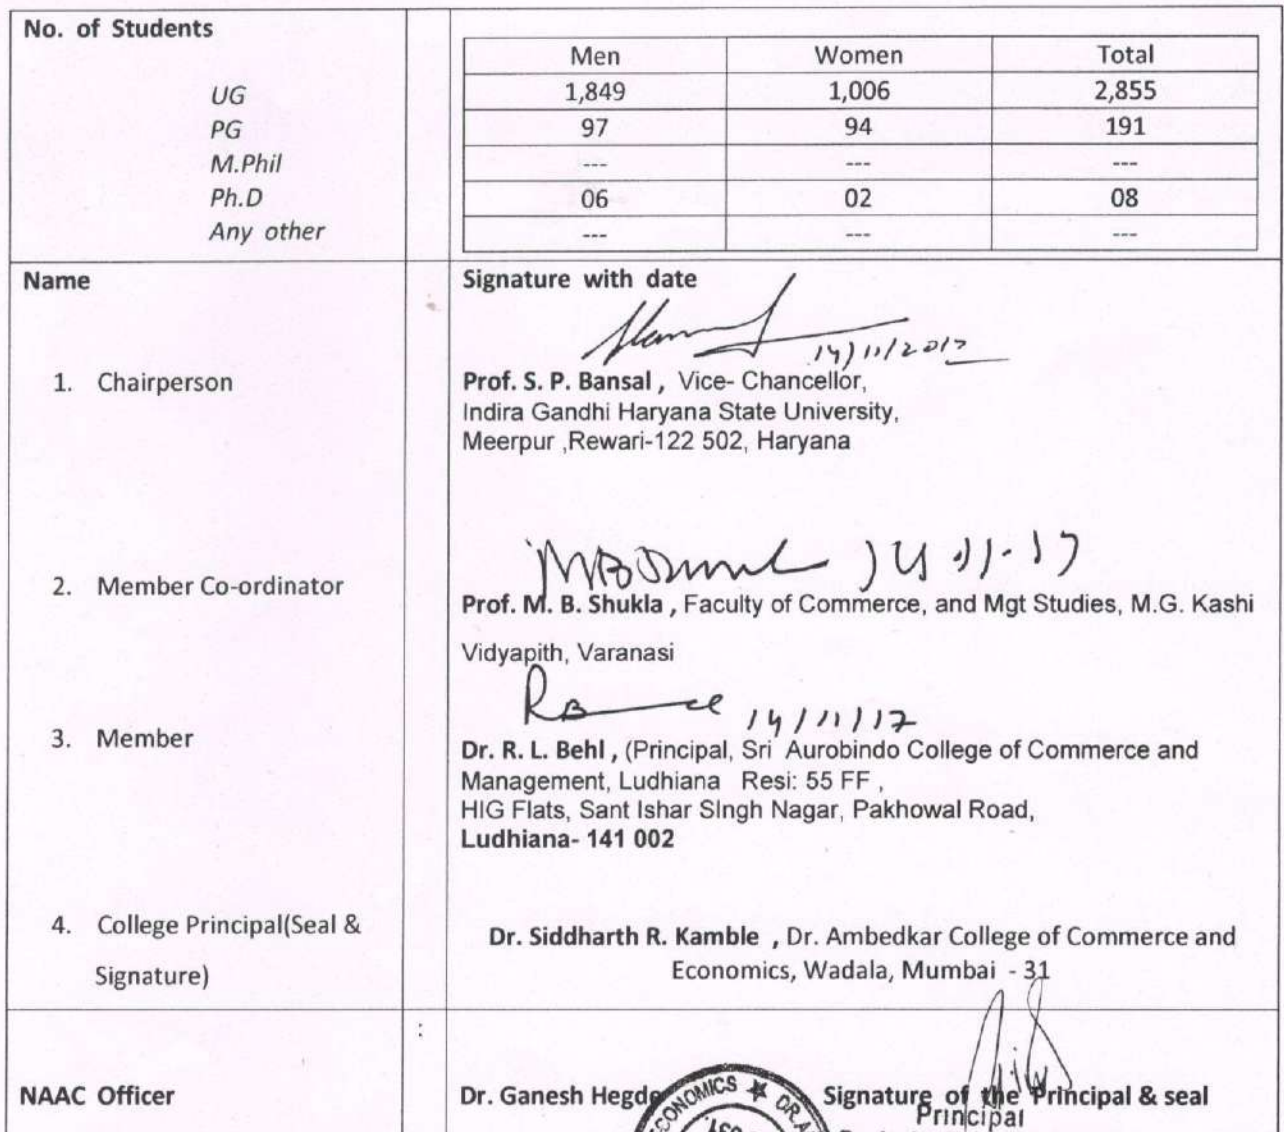 No. of Students
Men Women Total
UG 1,849 1,006 2,855
PG 97 94 191
M.Phil --- --- ---
Ph.D 06 02 08
Any other --- --- ---
Name Signature with date
14/11/2017
1. Chairperson Prof. S. P. Bansal , Vice- Chancellor,
Indira Gandhi Haryana State University,
Meerpur ,Rewari-122 502, Haryana
14.11.17
2. Member Co-ordinator Prof. M. B. Shukla , Faculty of Commerce, and Mgt Studies, M.G. Kashi
Vidyapith, Varanasi
14/11/17
3. Member Dr. R. L. Behl , (Principal, Sri Aurobindo College of Commerce and
Management, Ludhiana Resi: 55 FF ,
HIG Flats, Sant Ishar SIngh Nagar, Pakhowal Road,
Ludhiana- 141 002
4. College Principal(Seal &
Signature)
Dr. Siddharth R. Kamble , Dr. Ambedkar College of Commerce and
Economics, Wadala, Mumbai - 31
:
NAAC Officer Dr. Ganesh Hegde Signature of the Principal & seal
ECONOMICS ★ DR.
Principal